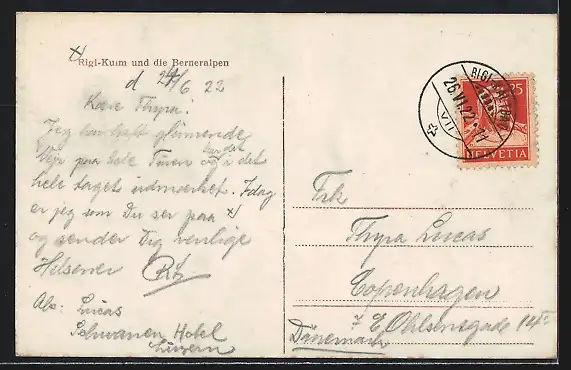 x) Rigi-Kulm und die Berneralpen
d 24/6 22
Kære Thyra!
Jeg har haft glimrende
Vejr paa hele Turen og har det i det
hele taget udmærket. Idag
er jeg som Du ser paa x)
og sender Dig venlige
Hilsener
Abs: Lucas
Schwanen Hotel
Luzern
26.VI.22
VII
25
HELVETIA
Frk
Thyra Lucas
Copenhagen
7 E Ohlsensgade 14
Dänemark